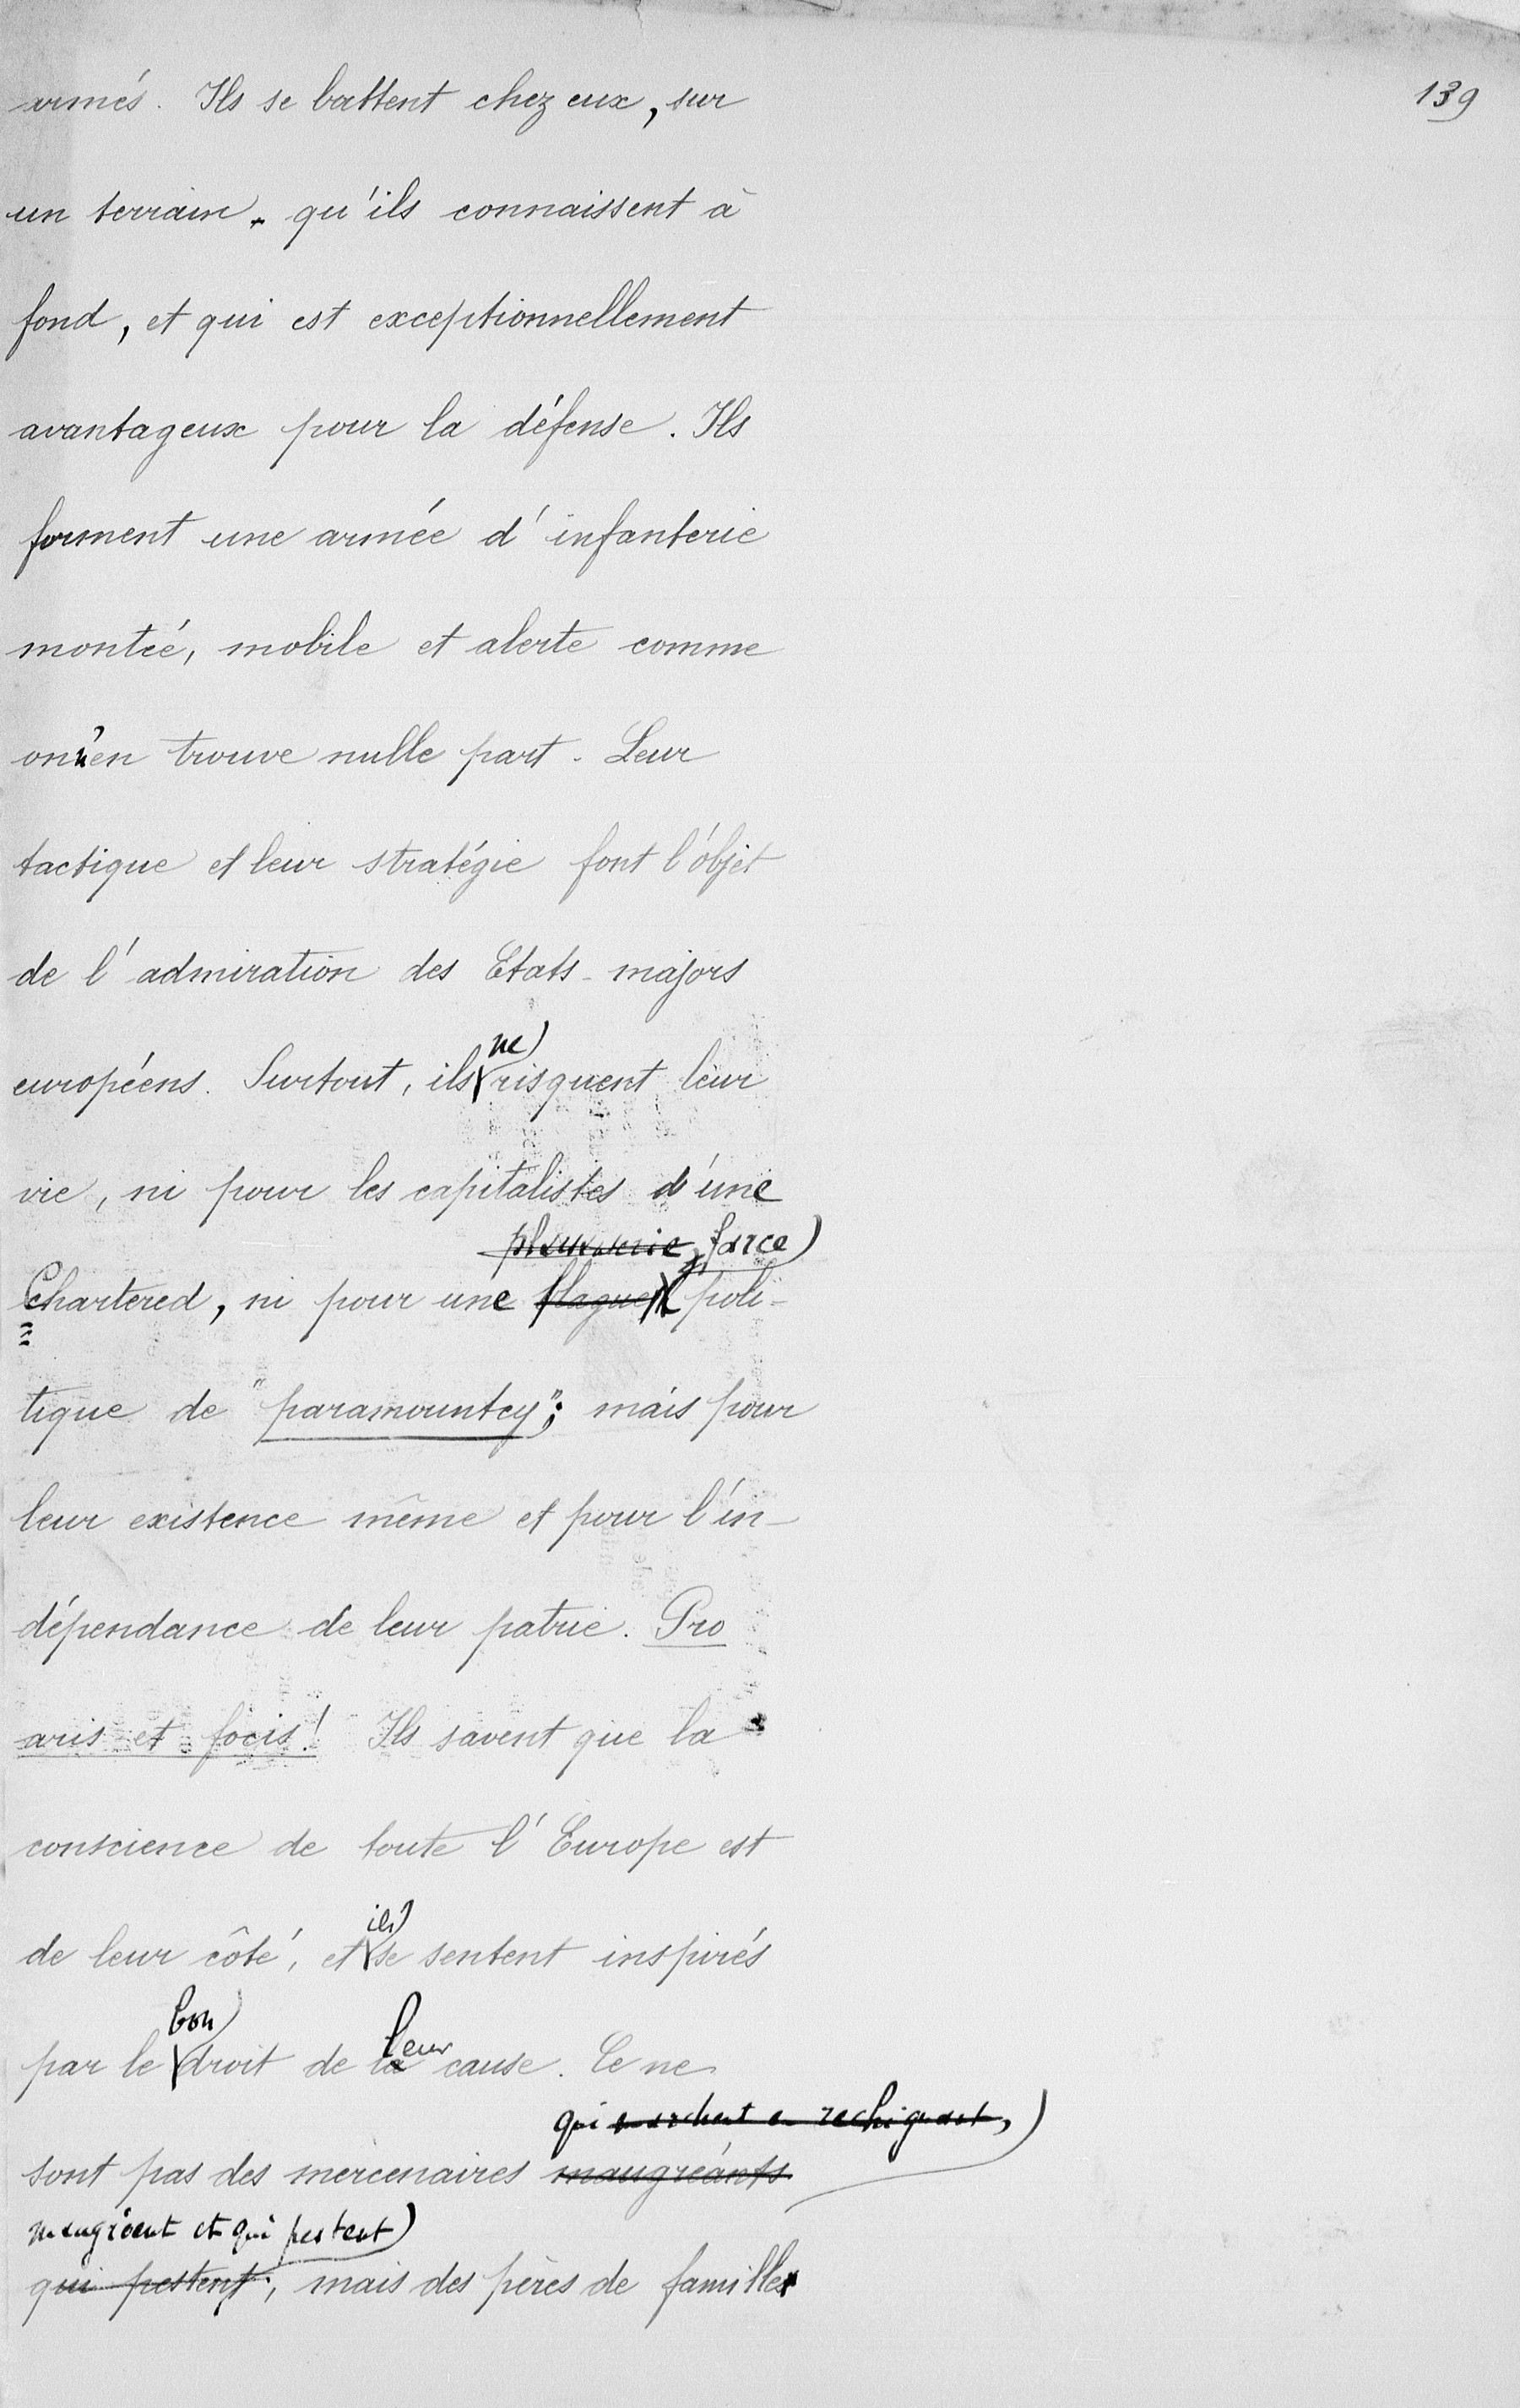 139
armés. Ils se battent chez eux, sur
un terrain qu'ils connaissent à
fond, et qui est exceptionnellement
avantageux pour la défense. Ils
forment une armée d'infanterie
montée, mobile et alerte comme
on n'en trouve nulle part. Leur
tactique et leur stratégie font l'objet
de l'admiration des Etats-majors
ne)
européens. Surtout, ils risquent leur
vie, ni pour les capitalistes d'une
farce)
Chartered, ni pour une blague poli-
tique de "paramountcy"; mais pour
leur existence même et pour l'in-
dépendance de leur patrie. Pro
aris et focis! Ils savent que la
conscience de toute l'Europe est
ils)
de leur côté, et se sentent inspirés
bon) leur
par le droit de la cause. Ce ne
qui marchent en rechignant,)
sont pas des mercenaires maugréants
maugréent et qui pestent)
qui pestent, mais des pères de famille